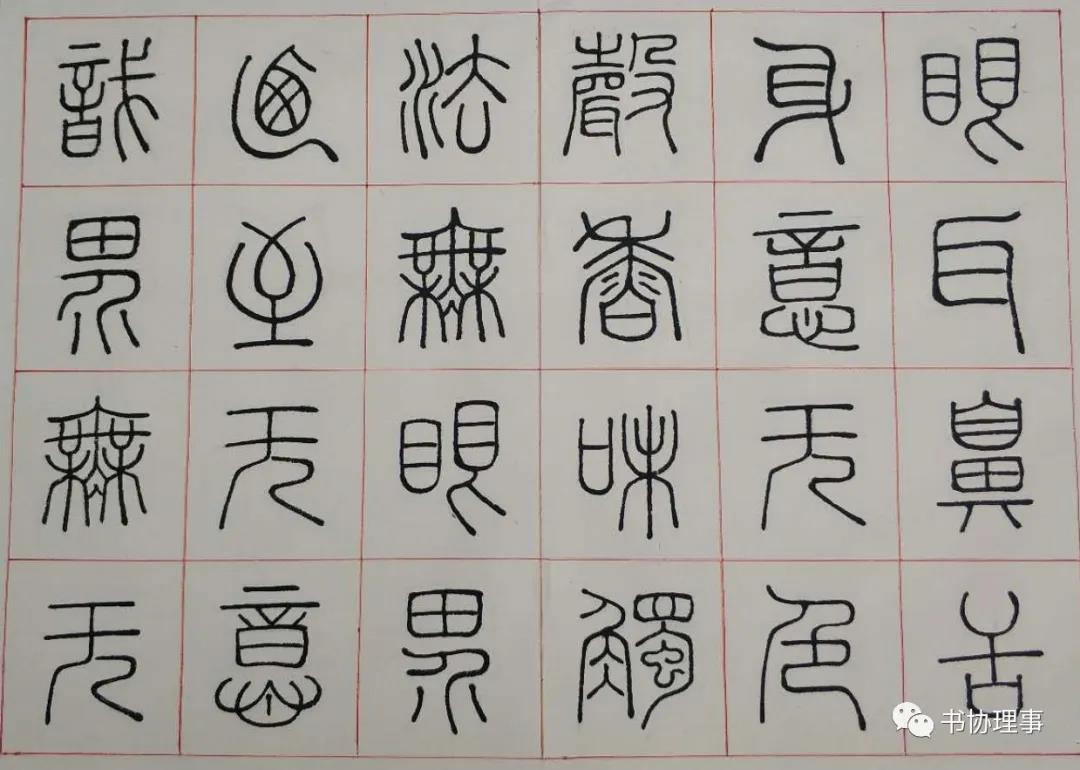 眼耳鼻舌
身意无色
聲香味觸
法無眼界
乃至无意
識界無无
书协理事